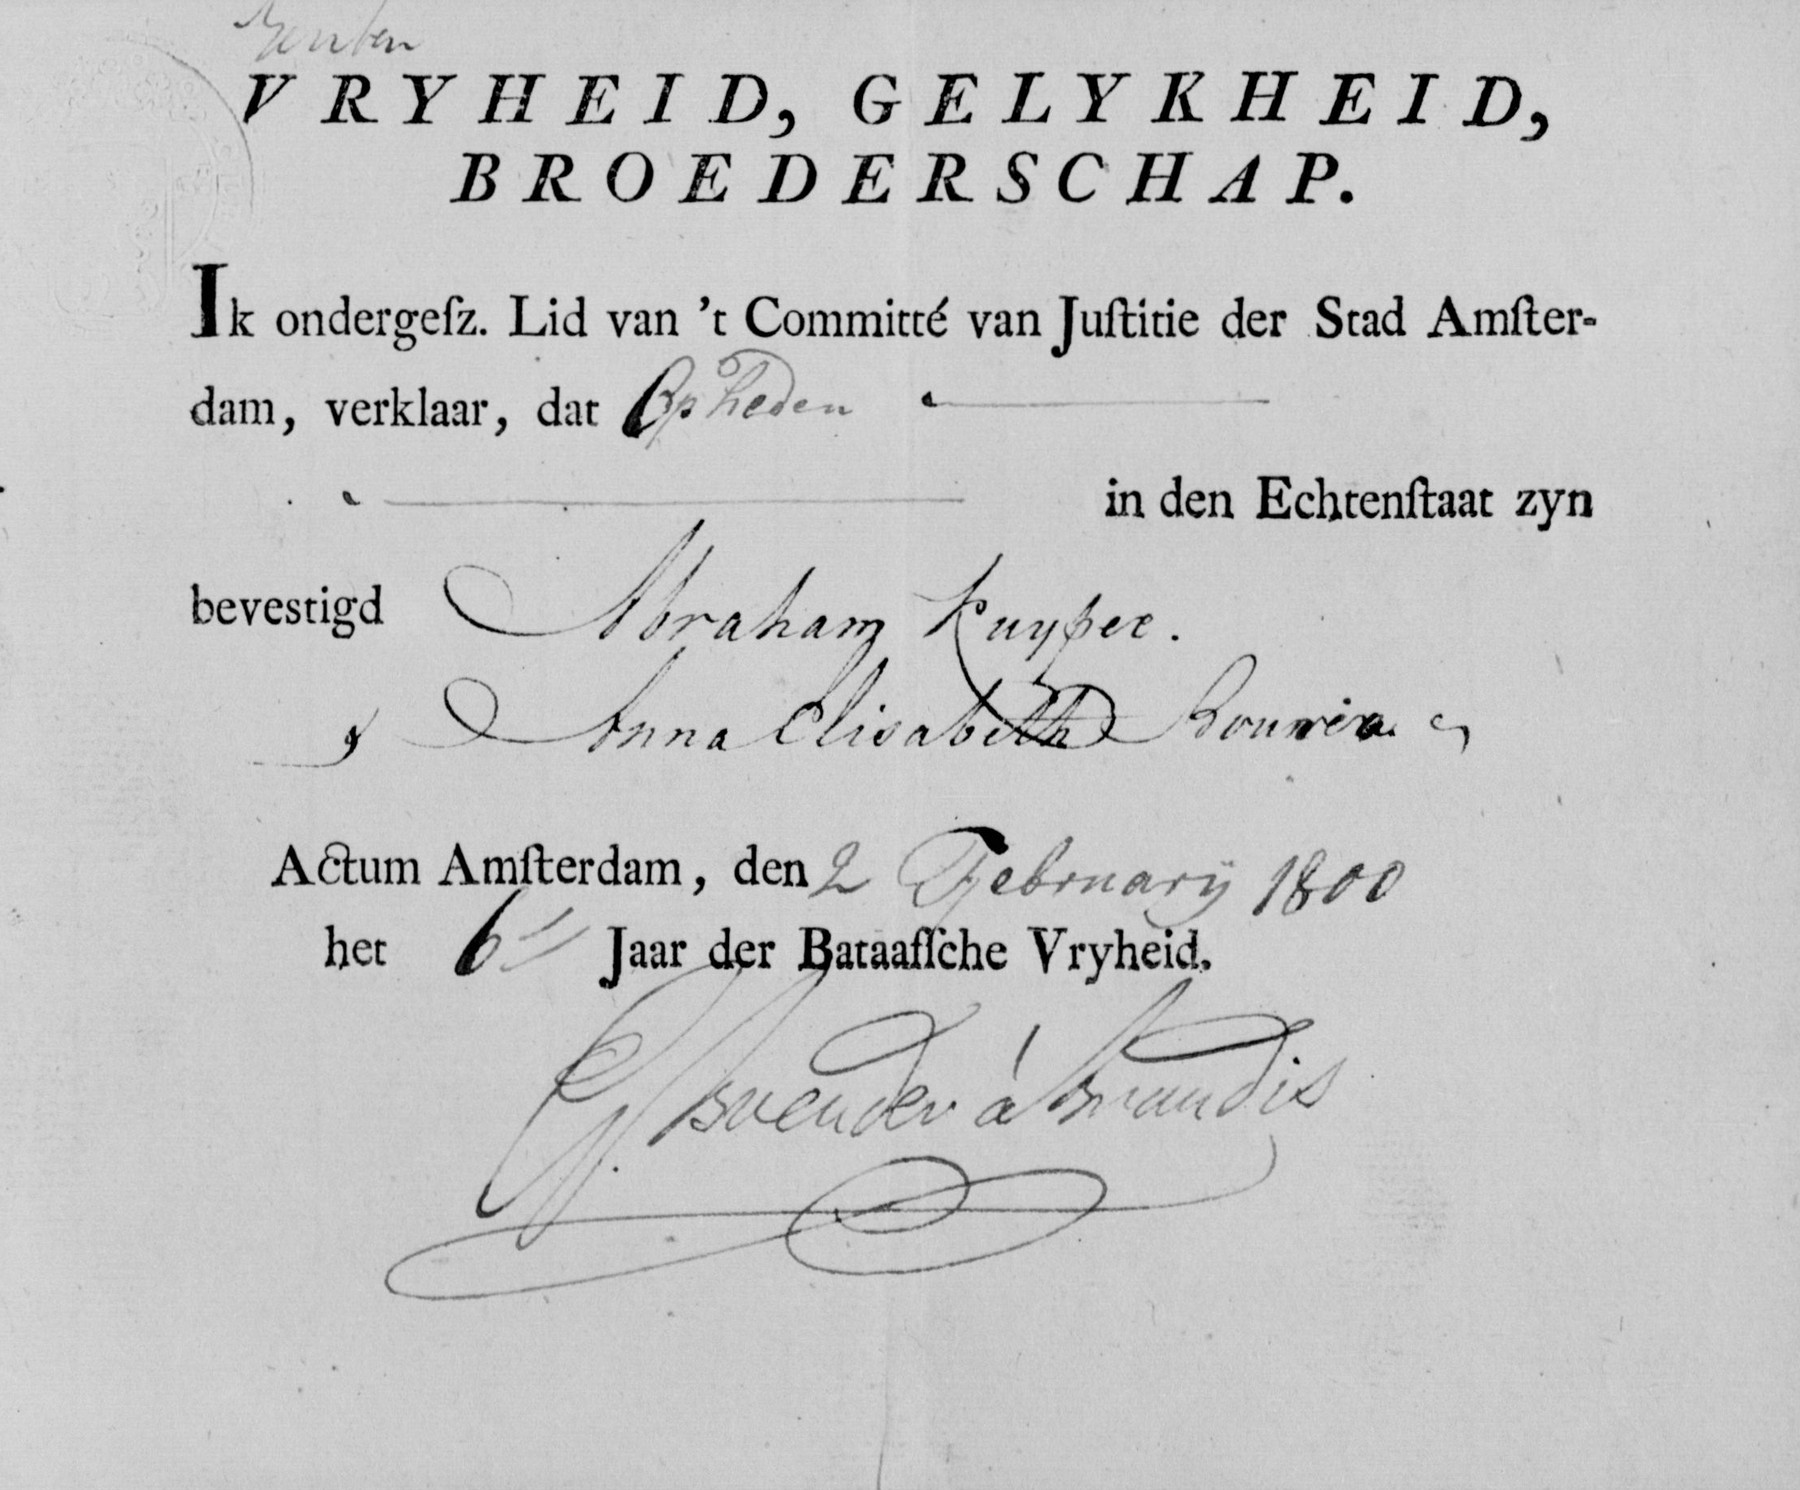 VRYHEID, GELYKHEID,
BROEDERSCHAP.
Ik ondergeſz. Lid van 't Committé van Juſtitie der Stad Amſter-
dam, verklaar, dat Op heden
in den Echtenſtaat zyn
bevestigd Abraham Kuyper.
Anna Elisabeth
Actum Amſterdam, den 2 February 1800
het 6 Jaar der Bataafſche Vryheid.
Brender á Brandis